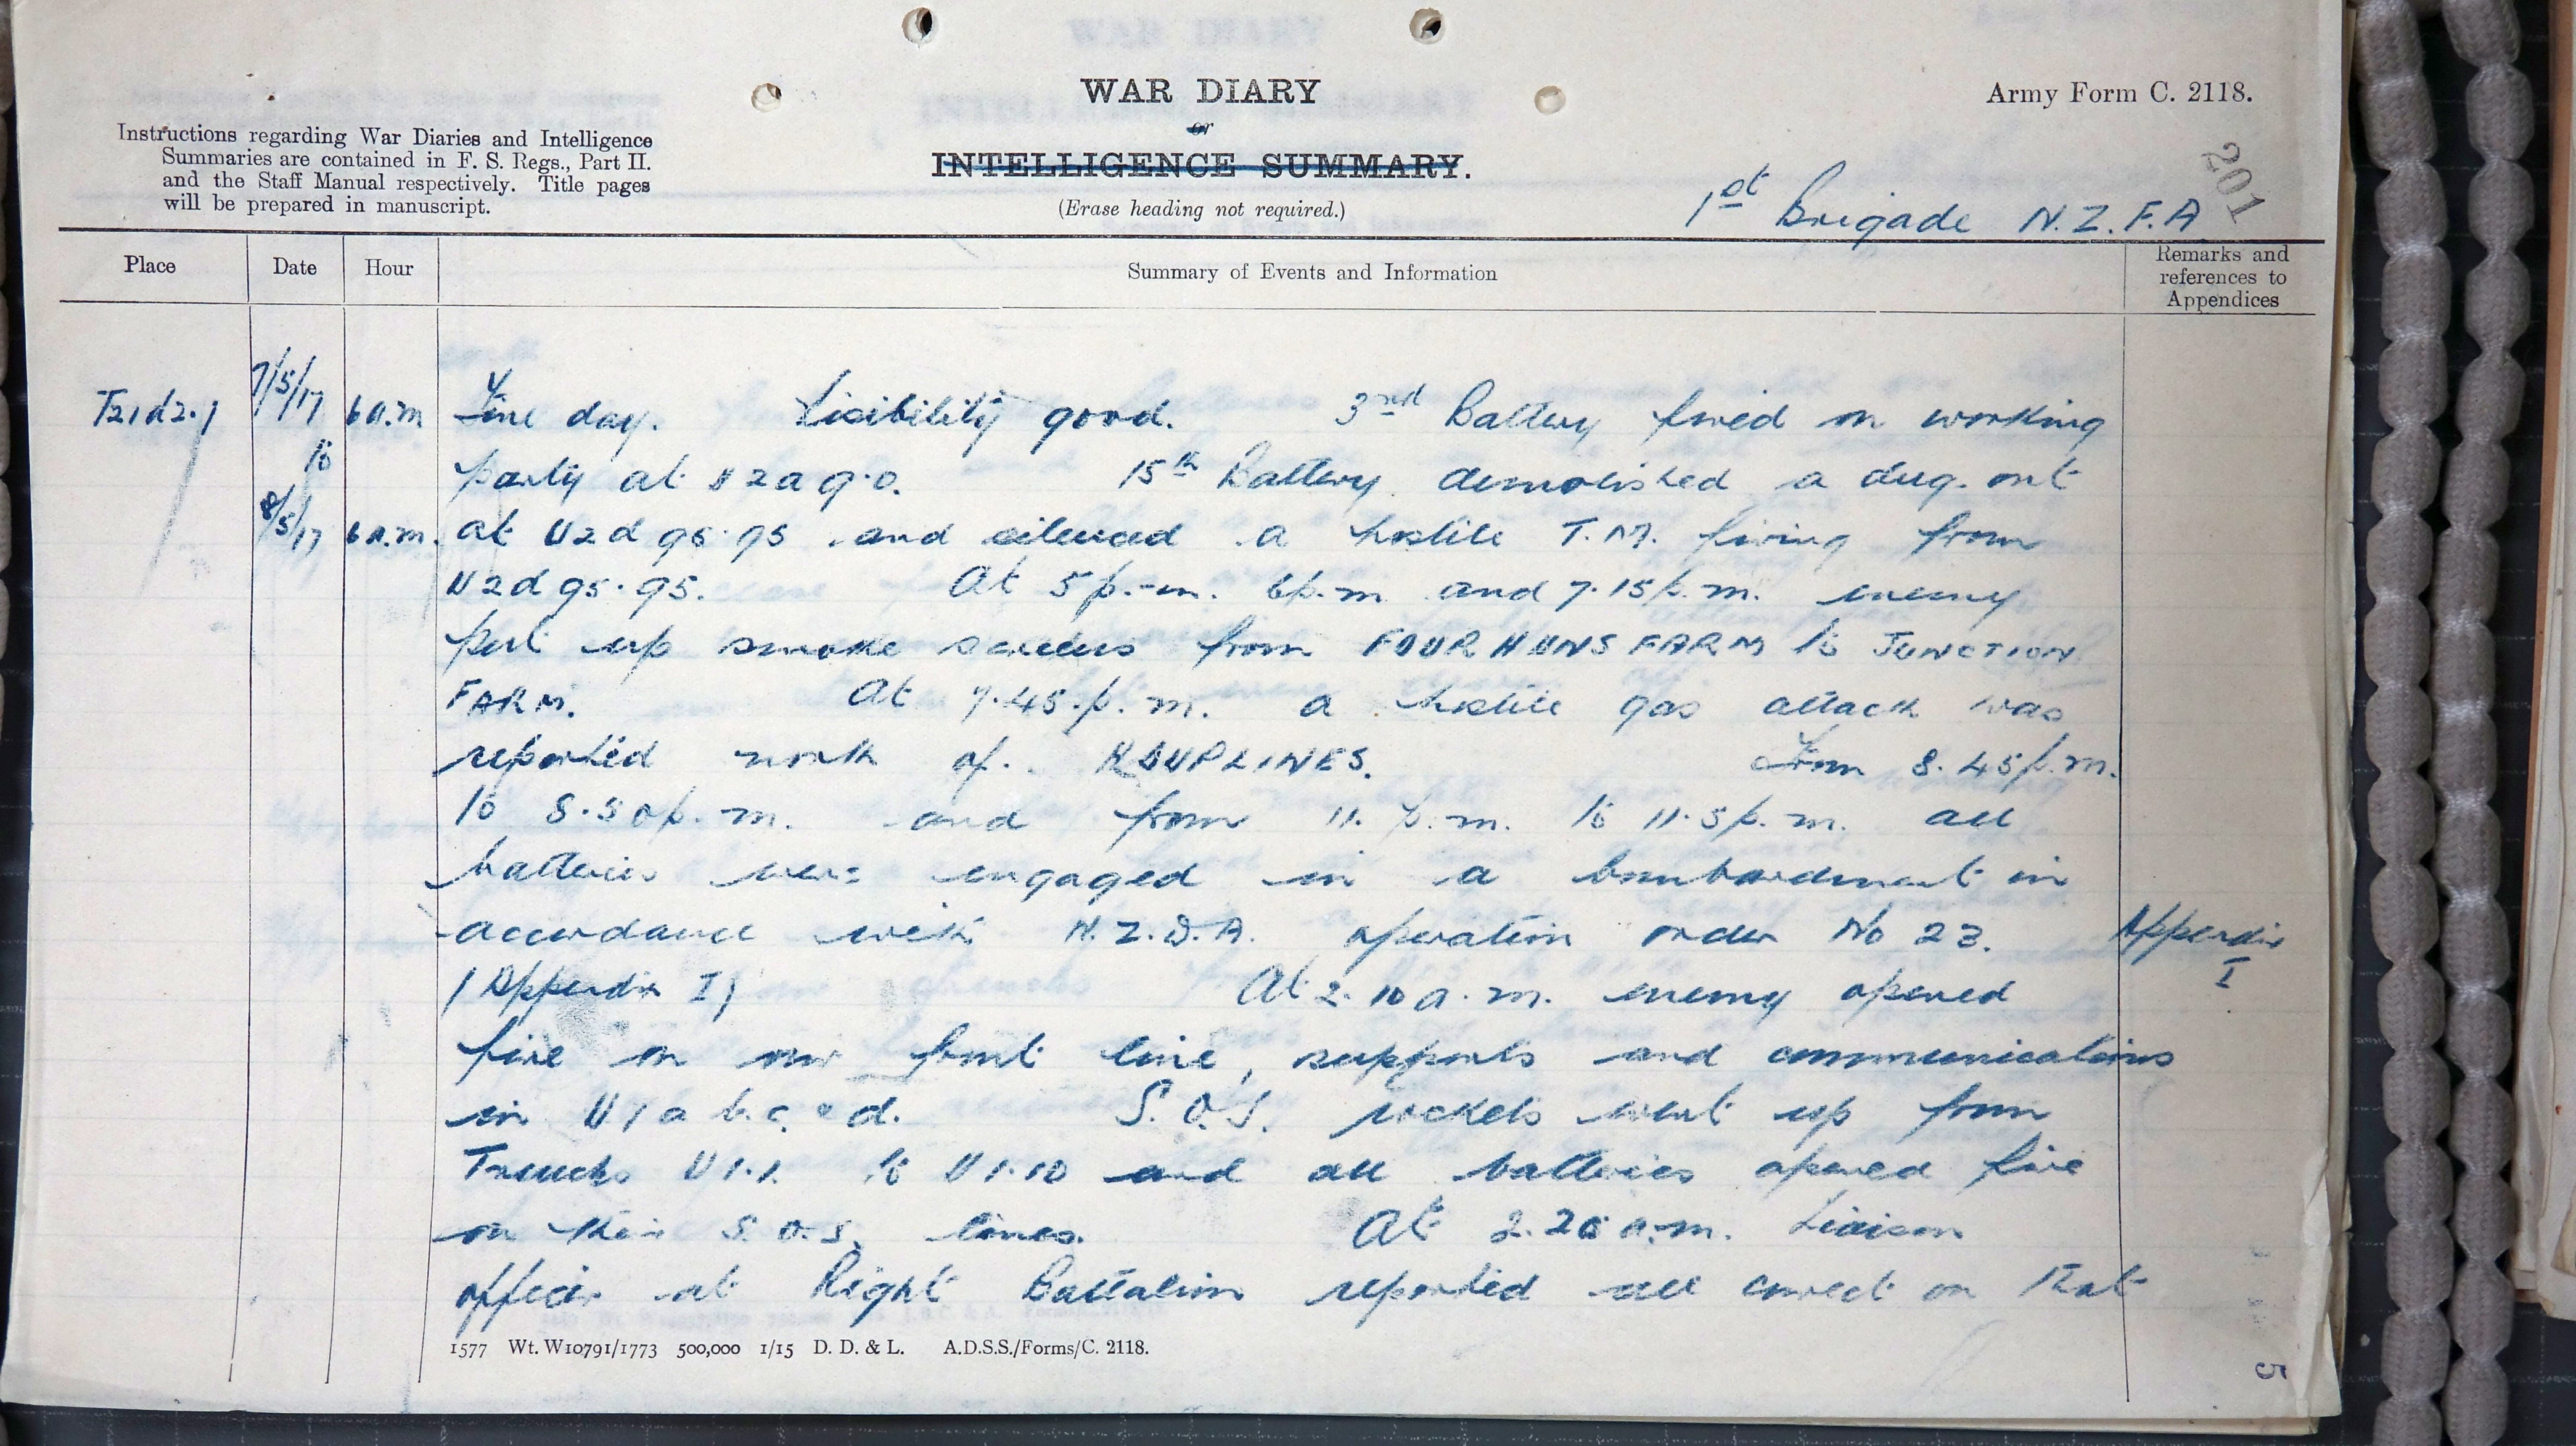 WAR DIARY
or
INTELLIGENCE SUMMARY.
(Erase heading not required.)
Army Form C. 2118.
Instructions regarding War Diaries and Intelligence
Summaries are contained in F. S. Regs., Part II.
and the Staff Manual respectively. Title pages
will be prepared in manuscript.
201
1st Brigade N.Z.F.A
Place Date Hour Summary of Events and Information Remarks and references to Appendices
T21d2.1 7/5/17 6 a.m Fine day. Visibility good. 3rd Battery fired on working
to party at U2a 9.0. 15th Battery demolished a dug-out
8/5/17 6 a.m. at U2d 95.95 and silenced a hostile T.M. firing from
U2d 95.95. At 5 p.m. 6 p.m and 7.15 p.m. enemy
put up smoke screens from FOUR HUNS FARM to JUNCTION
FARM. At 7.45 p.m. a hostile gas attack was
reported north of HOUPLINES. From 8.45 p.m.
to 8.50 p.m. and from 11. p.m. to 11.5 p.m. all
batteries were engaged in a bombardment in
accordance with N.Z.D.A. operation order No 23. Appendix
(Appendix I) At 2.10 a.m. enemy opened I
fire on our front line, supports and communications
in U1a b. c. & d. S.O.S. rockets went up from
Trenches U1.1. to U1.10 and all batteries opened fire
on their S.O.S. lines. At a.m. Liaison
officer at Right Battalion reported all correct on that
1577 Wt. W10791/1773 500,000 1/15 D. D. & L. A.D.S.S./Forms/C. 2118.
5